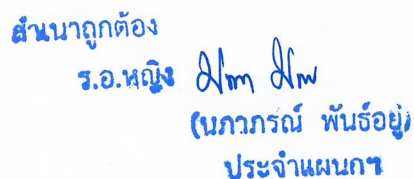 สำเนาถูกต้อง
ร.อ.หญิง
(นภวภรณ์ พันธ์อยู่)
ประจำแผนกฯ